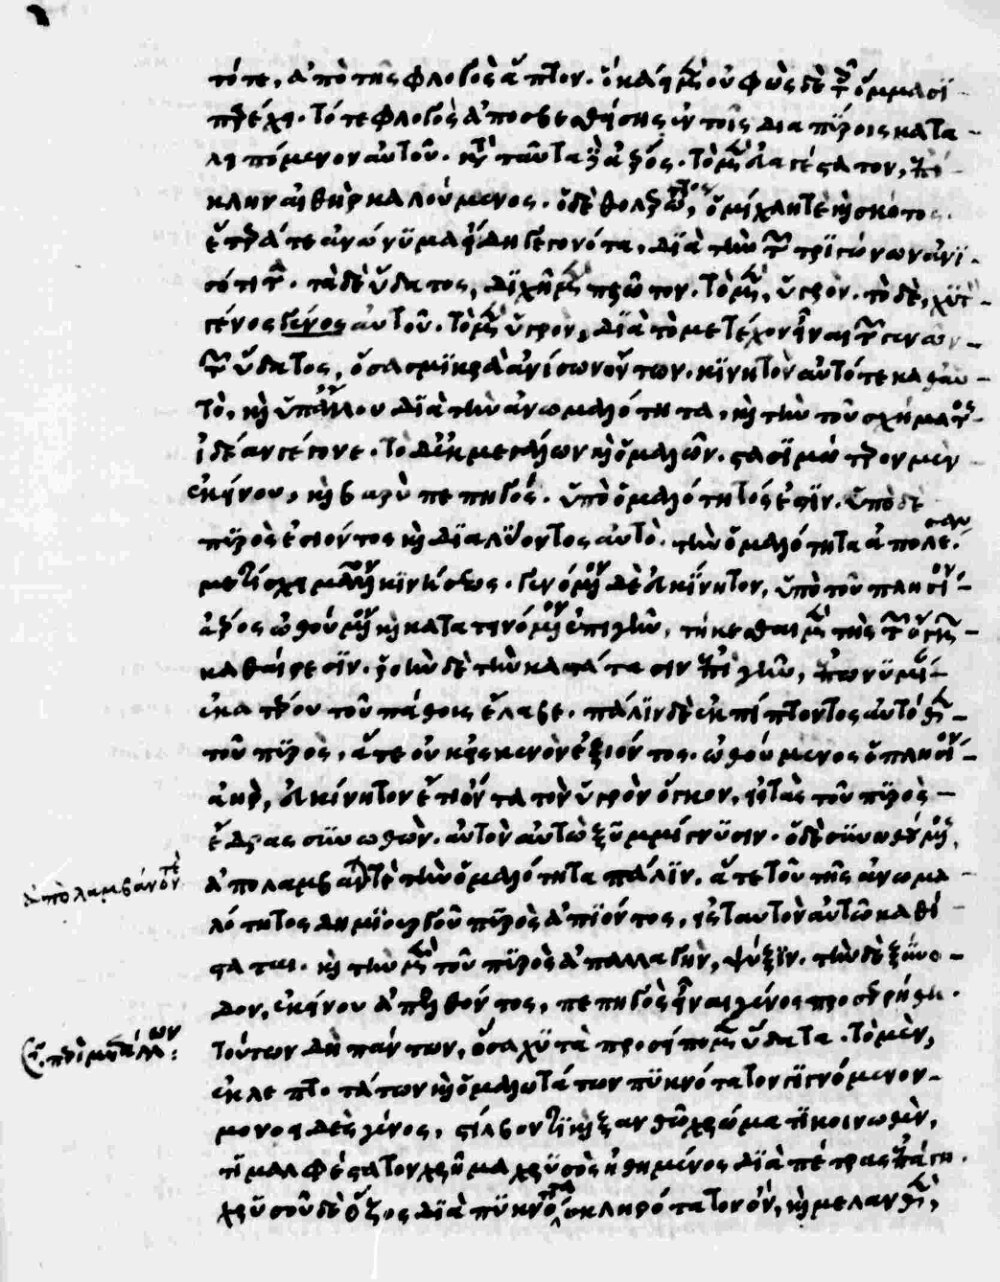 τότε, ἀπὸ τῆς φλογὸς ἄπιον. ὃ κάει μὲν οὐ φῶς δὲ τοῖς ὄμμασι
παρέχει. τό τε φλογὸς ἀποσβεσθείσης ἐν τοῖς διαπύροις κατα-
λειπόμενον αὐτοῦ. κατὰ ταῦτα δὲ ἀέρος. τὸ μὲν εὐαγέστατον, ἐπί-
κλην αἰθὴρ καλούμενος. ὁ δὲ θολερώτατος, ὁμίχλη τε καὶ σκότος.
ἕτερά τε ἀνώνυμα εἴδη γεγονότα, διὰ τὴν τῶν τριγώνων ἀνι-
σότητα. τὰ δὲ ὕδατος, διχῇ μὲν πρῶτον. τὸ μὲν, ὑγρόν. τὸ δὲ, χυτὸν
γένος γένος αὐτοῦ. τὸ μὲν ὑγρὸν, διὰ τὸ μετέχον εἶναι τῶν γενῶν
τῶν ὕδατος, ὅσα σμικρὰ ἀνίσων ὄντων. κινητὸν αὐτό τε καθ' αὑ-
τὸ, καὶ ὑπ' ἄλλου διὰ τὴν ἀνωμαλότητα, καὶ τὴν τοῦ σχήματος
ἰδέαν γέγονε. τὸ δ' ἐκ μεγάλων καὶ ὁμαλῶν. στασιμώτερον μὲν
ἐκείνου, καὶ βαρὺ πεπηγός. ὑπὸ ὁμαλότητός ἐστιν. ὑπὸ δὲ
πυρὸς εἰσιόντος καὶ διαλύοντος αὐτὸ. τὴν ὁμαλότητα ἀπολέσαν
μετίσχει μᾶλλον κινήσεως. γενόμενον δὲ εὐκίνητον, ὑπὸ τοῦ πλησίον
ἀέρος ὠθούμενον καὶ κατατεινόμενον ἐπὶ γῆν, τήκεσθαι μὲν τῆς τῶν ὄγκων
καθαίρεσιν. ῥοὴν δὲ τὴν κατάτασιν ἐπὶ γῆν, ἐπωνυμίαν
ἑκατέρου τοῦ πάθους ἔλαβε. πάλιν δὲ ἐκπίπτοντος αὐτόθεν
τοῦ πυρὸς, ἅτε οὐκ εἰς κενὸν ἐξιόντος. ὠθούμενος ὁ πλησίον
ἀὴρ, εὐκίνητον ἔτι ὄντα τὸν ὑγρὸν ὄγκον, εἰς τὰς τοῦ πυρὸς
ἕδρας συνωθῶν. αὐτὸν αὑτῷ ξυμμίγνυσιν. ὁ δὲ συνωθούμενος,
ἀπολαμβάνων τε τὴν ὁμαλότητα πάλιν. ἅτε τοῦ τῆς ἀνωμα-
λότητος δημιουργοῦ πυρὸς ἀπιόντος, εἰς ταυτὸν αὑτῷ καθί-
σταται. καὶ τὴν μὲν τοῦ πυρὸς ἀπαλλαγὴν, ψύξιν. τὴν δὲ ξύνο-
δον, ἐκείνου ἀπελθόντος, πεπηγὸς εἶναι γένος προσερρήθη.
τούτων δὴ πάντων, ὅσα χυτὰ προσείπομεν ὕδατα. τὸ μὲν,
ἐκ λεπτοτάτων καὶ ὁμαλωτάτων πυκνότατον γιγνόμενον.
μονοειδὲς γένος, στίλβοντι καὶ ξανθῷ χρώματι κοινωθὲν,
τιμαλφέστατον χρῆμα χρυσὸς ἠθημένος διὰ πέτρας ἐπάγη.
χρυσοῦ δὲ ὄζος διὰ πυκνότητα σκληρότατον ὂν, καὶ μελανθὲν,
ἀπολαμβάνον τε
περὶ μετάλλων: